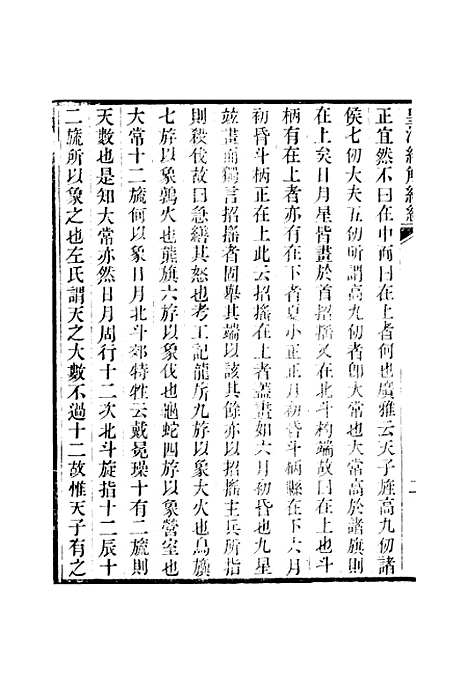 皇清經解續編
正宜然不曰在中而曰在上者何也廣雅云天子旌高九仞諸
侯七仞大夫五仞所謂高九仞者即大常也大常高於諸旗則
在上矣日月星皆畫於首招搖又在北斗杓端故曰在上也斗
柄有在上者亦有在下者夏小正正月初昏斗柄縣在下六月
初昏斗柄正在上此云招搖在上者蓋畫如六月初昏也九星
竝畫而獨言招搖者固舉其端以該其餘亦以招搖主兵所指
則殺伐故曰急繕其怒也考工記龍旂九斿以象大火也鳥旟
七斿以象鶉火也熊旗六斿以象伐也龜蛇四斿以象營室也
大常十二旒何以象日月北斗郊特牲云戴冕璪十有二旒則
天數也是知大常亦然日月周行十二次北斗旋指十二辰十
二旒所以象之也左氏謂天之大數不過十二故惟天子有之